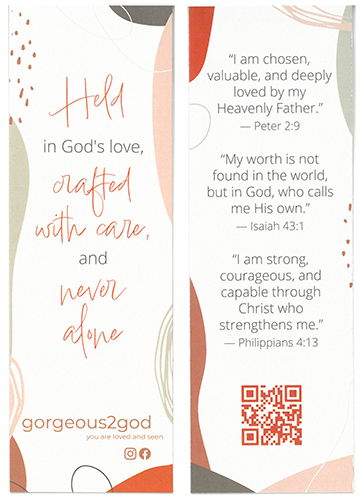 Held
in God's love,
crafted
with care,
and
never
alone
gorgeous2god
you are loved and seen.
“I am chosen,
valuable, and deeply
loved by my
Heavenly Father.”
— Peter 2:9
“My worth is not
found in the world,
but in God, who calls
me His own.”
— Isaiah 43:1
“I am strong,
courageous, and
capable through
Christ who
strengthens me.”
— Philippians 4:13